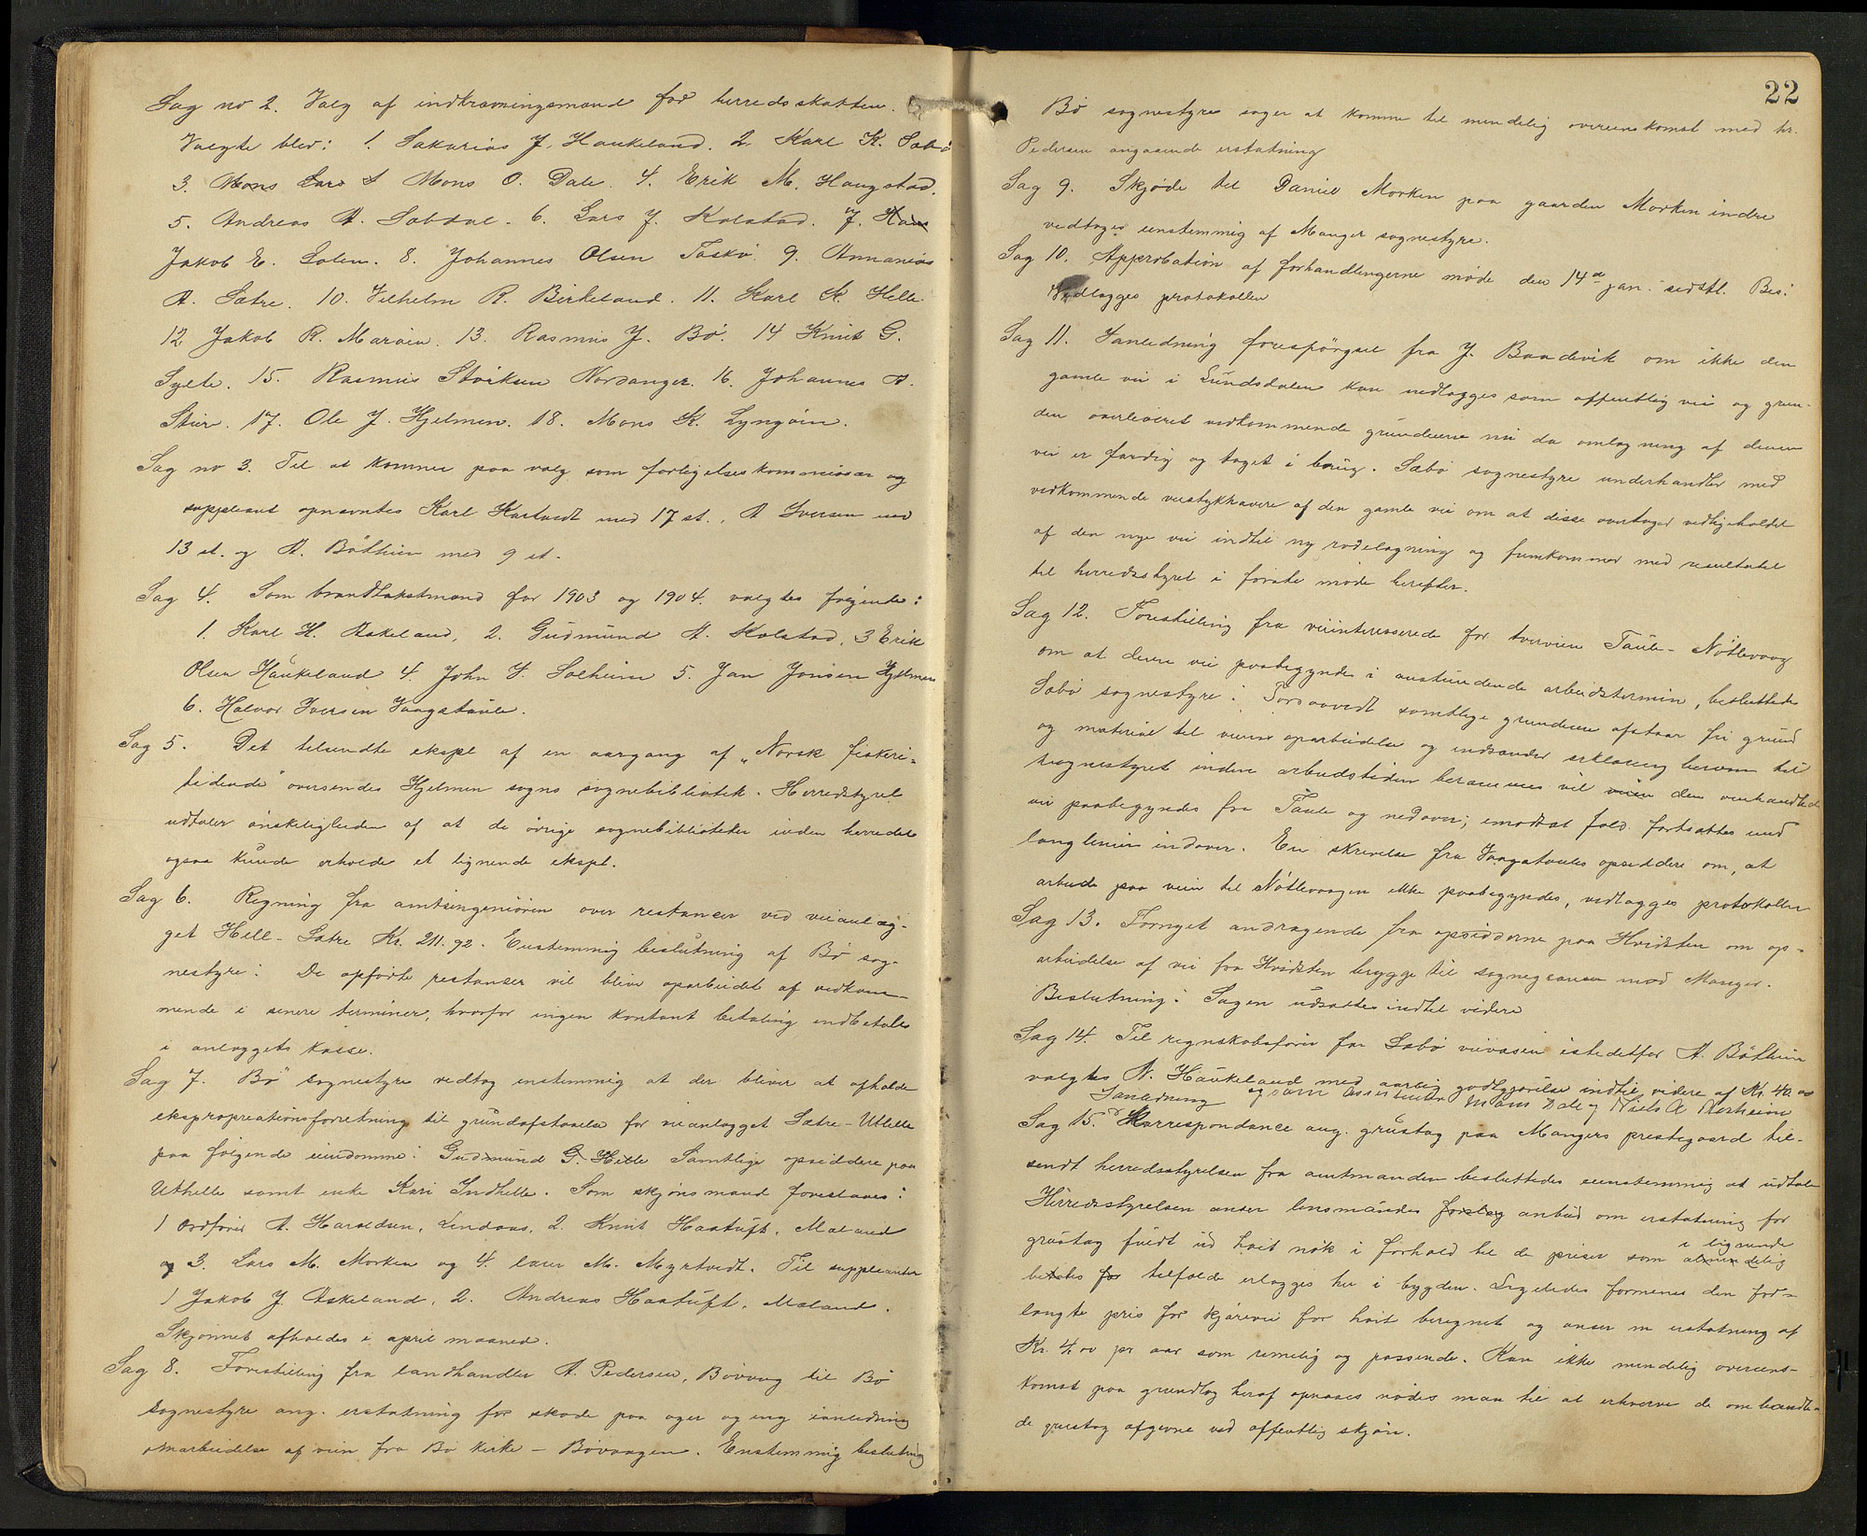 Sag no 2. Valg af indkrævningsmænd for herredsskatten.
Valgte blev: 1. Sakarias J. Haukeland. 2. Karl K. Sæbø
3. Mons Lars S Mons O. Dale. 4. Erik M. Haugstad.
5. Andreas A. Sæbdal. 6. Lars J. Kolstad. 7. Hans
Jakob E. Solem. 8. Johannes Olsen Toska. 9. Annanias
A. Sætre. 10. Vilhelm R. Birkeland. 11. Karl K. Helle.
12 Jakob R. Marøin. 13. Rasmus J. Bø. 14 Knut G.
Sylte. 15. Rasmus Størksen Nordanger. 16. Johannes A.
Stur. 17. Ole J. Hjelmen. 18. Mons K. Lyngøin.
Sag no 3. Til at komme paa valg som forligelseskommissær og
suppleant opnævntes Karl Kartvedt med 17 st., A Iversen med
13 st. og A. Bøthun med 9 st.
Sag 4. Som brandtakstmænd for 1903 og 1904. valgtes følgende:
1. Karl H. Askeland, 2. Gudmund A. Kolstad, 3 Erik
Olsen Haukeland 4. John S. Solheim 5. Jan Jonsen Hjelmen
6. Halvor Iversen Vaagstaule.
Sag 5. Det tilsendte ekspl af en aargang af „Norsk fiskeri-
tidende" oversendes Hjelmen sogns sognebibliotek. Herredsstyret
udtaler ønskeligheden af at de øvrige sognebibliotheker inden herredet
ogsaa kunde erholde et lignende ekspl.
Sag 6. Regning fra amtsingeniøren over restancer ved veianlæg-
get Hell-Sætre Kr. 211.92. Enstemmig beslutning af Bø sog-
nestyre: De opførte restanser vil blive oparbeidet af vedkom-
mende i senere terminer, hvorfor ingen kontant betaling indbetales
i anlæggets kasse.
Sag 7. Bø sognestyre vedtog enstemmig at der bliver at afholde
ekspropreationsforretning til grundafstaaelse for veianlægget Sætre-Uthelle
paa følgende eiendomme: Gudmund G. Helle Samtlige opsiddere paa
Uthelle samt enke Kari Indhelle. Som skjønsmænd foreslaaes:
1 Ordfører A. Haraldsen, Lindaas, 2. Knut Hastuft, Mæland
og 3. Lars M. Morken og 4. lærer M. Myrtvedt. Til suppleanter
1 Jakob J. Askeland, 2. Andreas Hastuft, Mæland.
Skjønnet afholdes i april maaned.
Sag 8. Forestilling fra landhandler A. Pedersen, Bøvaag til Bø
sognestyre ang. erstatning for skade paa ager og eng ianledning
omarbeidelse af veien fra Bø kirke - Bøvaagen. Enstemmig beslutning
22
Bø sognestyre søger at komme til mindelig overenskomst med hr.
Pedersen angaaende erstatning
Sag 9. Skjøde til Daniel Morken paa gaarden Morken indre
vedtages enstemmig af Manger sognestyre.
Sag 10. Approbation af forhandlingerne møde den 14de jan. sidstl. Bes:
Vedlægges protokollen
Sag 11. Ianledning forespørgsel fra J. Baadsvik om ikke den
gamle vei i Lundsdalen kan nedlægges som offentlig vei og grun-
den overleveret vedkommende grundeiere nu da omlægning af denne
vei er færdig og taget i brug. Sæbø sognestyre underhandler med
vedkommende veistykkhavere af den gamle vei om at disse overtager vedligeholdet
af den nye vei indtil ny rodelægning og fremkommer med resultatet
til herredsstyret i første møde herefter.
Sag 12. Forestilling fra veiinteresserede for tverveien Taule - Nøtlevaag
om at denne vei paabegyndes i anstundende arbeidstermin, besluttede
Sæbø sognestyre: Forsaavidt samtlige grundeiere afstaar fri grund
og material til veiens oparbeidelse og indsender erklæring herom til
sognestyret inden arbeidstiden berammes vil veien den omhandlede
vei paabegyndes fra Taule og nedover; imodsat fald fortsættes med
langlinien indover. En skrivelse fra Vaagstaules opsiddere om, at
arbeide paa veien til Nøtlevaagen ikke paabegyndes, vedlægges protokollen
Sag 13. Fornyet andragende fra opsidderne paa Hvidsten om op-
arbeidelse af vei fra Hvidsten brygge til sognegrænsen mod Manger.
Beslutning: Sagen udsættes indtil videre
Sag 14. Til regnskabsfører for Sæbø veivæsen istedetfor A. Bøthun
valgtes N. Haukeland med aarlig godtgjørelse indtil videre af Kr. 40.00
og som assistenter Mons Dale og Niels A
Ianledning
Sag 15. Korrespondance ang. grustag paa Mangers prestegaard til-
sendt herredsstyrelsen fra amtmanden besluttedes enstemmig at udtale
Herredsstyrelsen anser lensmandens forslag anbud om erstatning for
grustag fuldt ud høit nok i forhold til de priser som almindelig
i lignende
betales for tilfælde erlægges her i bygden. Ligeledes formenes den for-
langte pris for kjørevei for høit beregnet og anser en erstatning af
Kr. 4.00 pr aar som rimelig og passende. Kan ikke mindelig overens-
komst paa grundlag heraf opnaaes nødes man til at erhverve de omhandle-
de grustag afgivne ved offentlig skjøn.